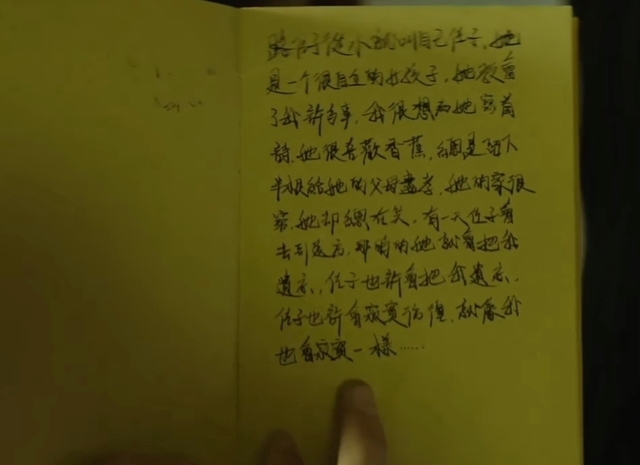 子從小就叫自己任子,她
是一个很自立的女孩子,她教會
了我許多事,我很想為她寫首
詩.她很喜歡香蕉,總是留下
半根給她的父母盡孝,她的家很
窮,她却總在笑,有一天任子會
去到遠方,那時的她就會把我
遺忘,任子也許會把我遺忘,
任子也許會寂寞彷徨,就像我
也會寂寞一樣……